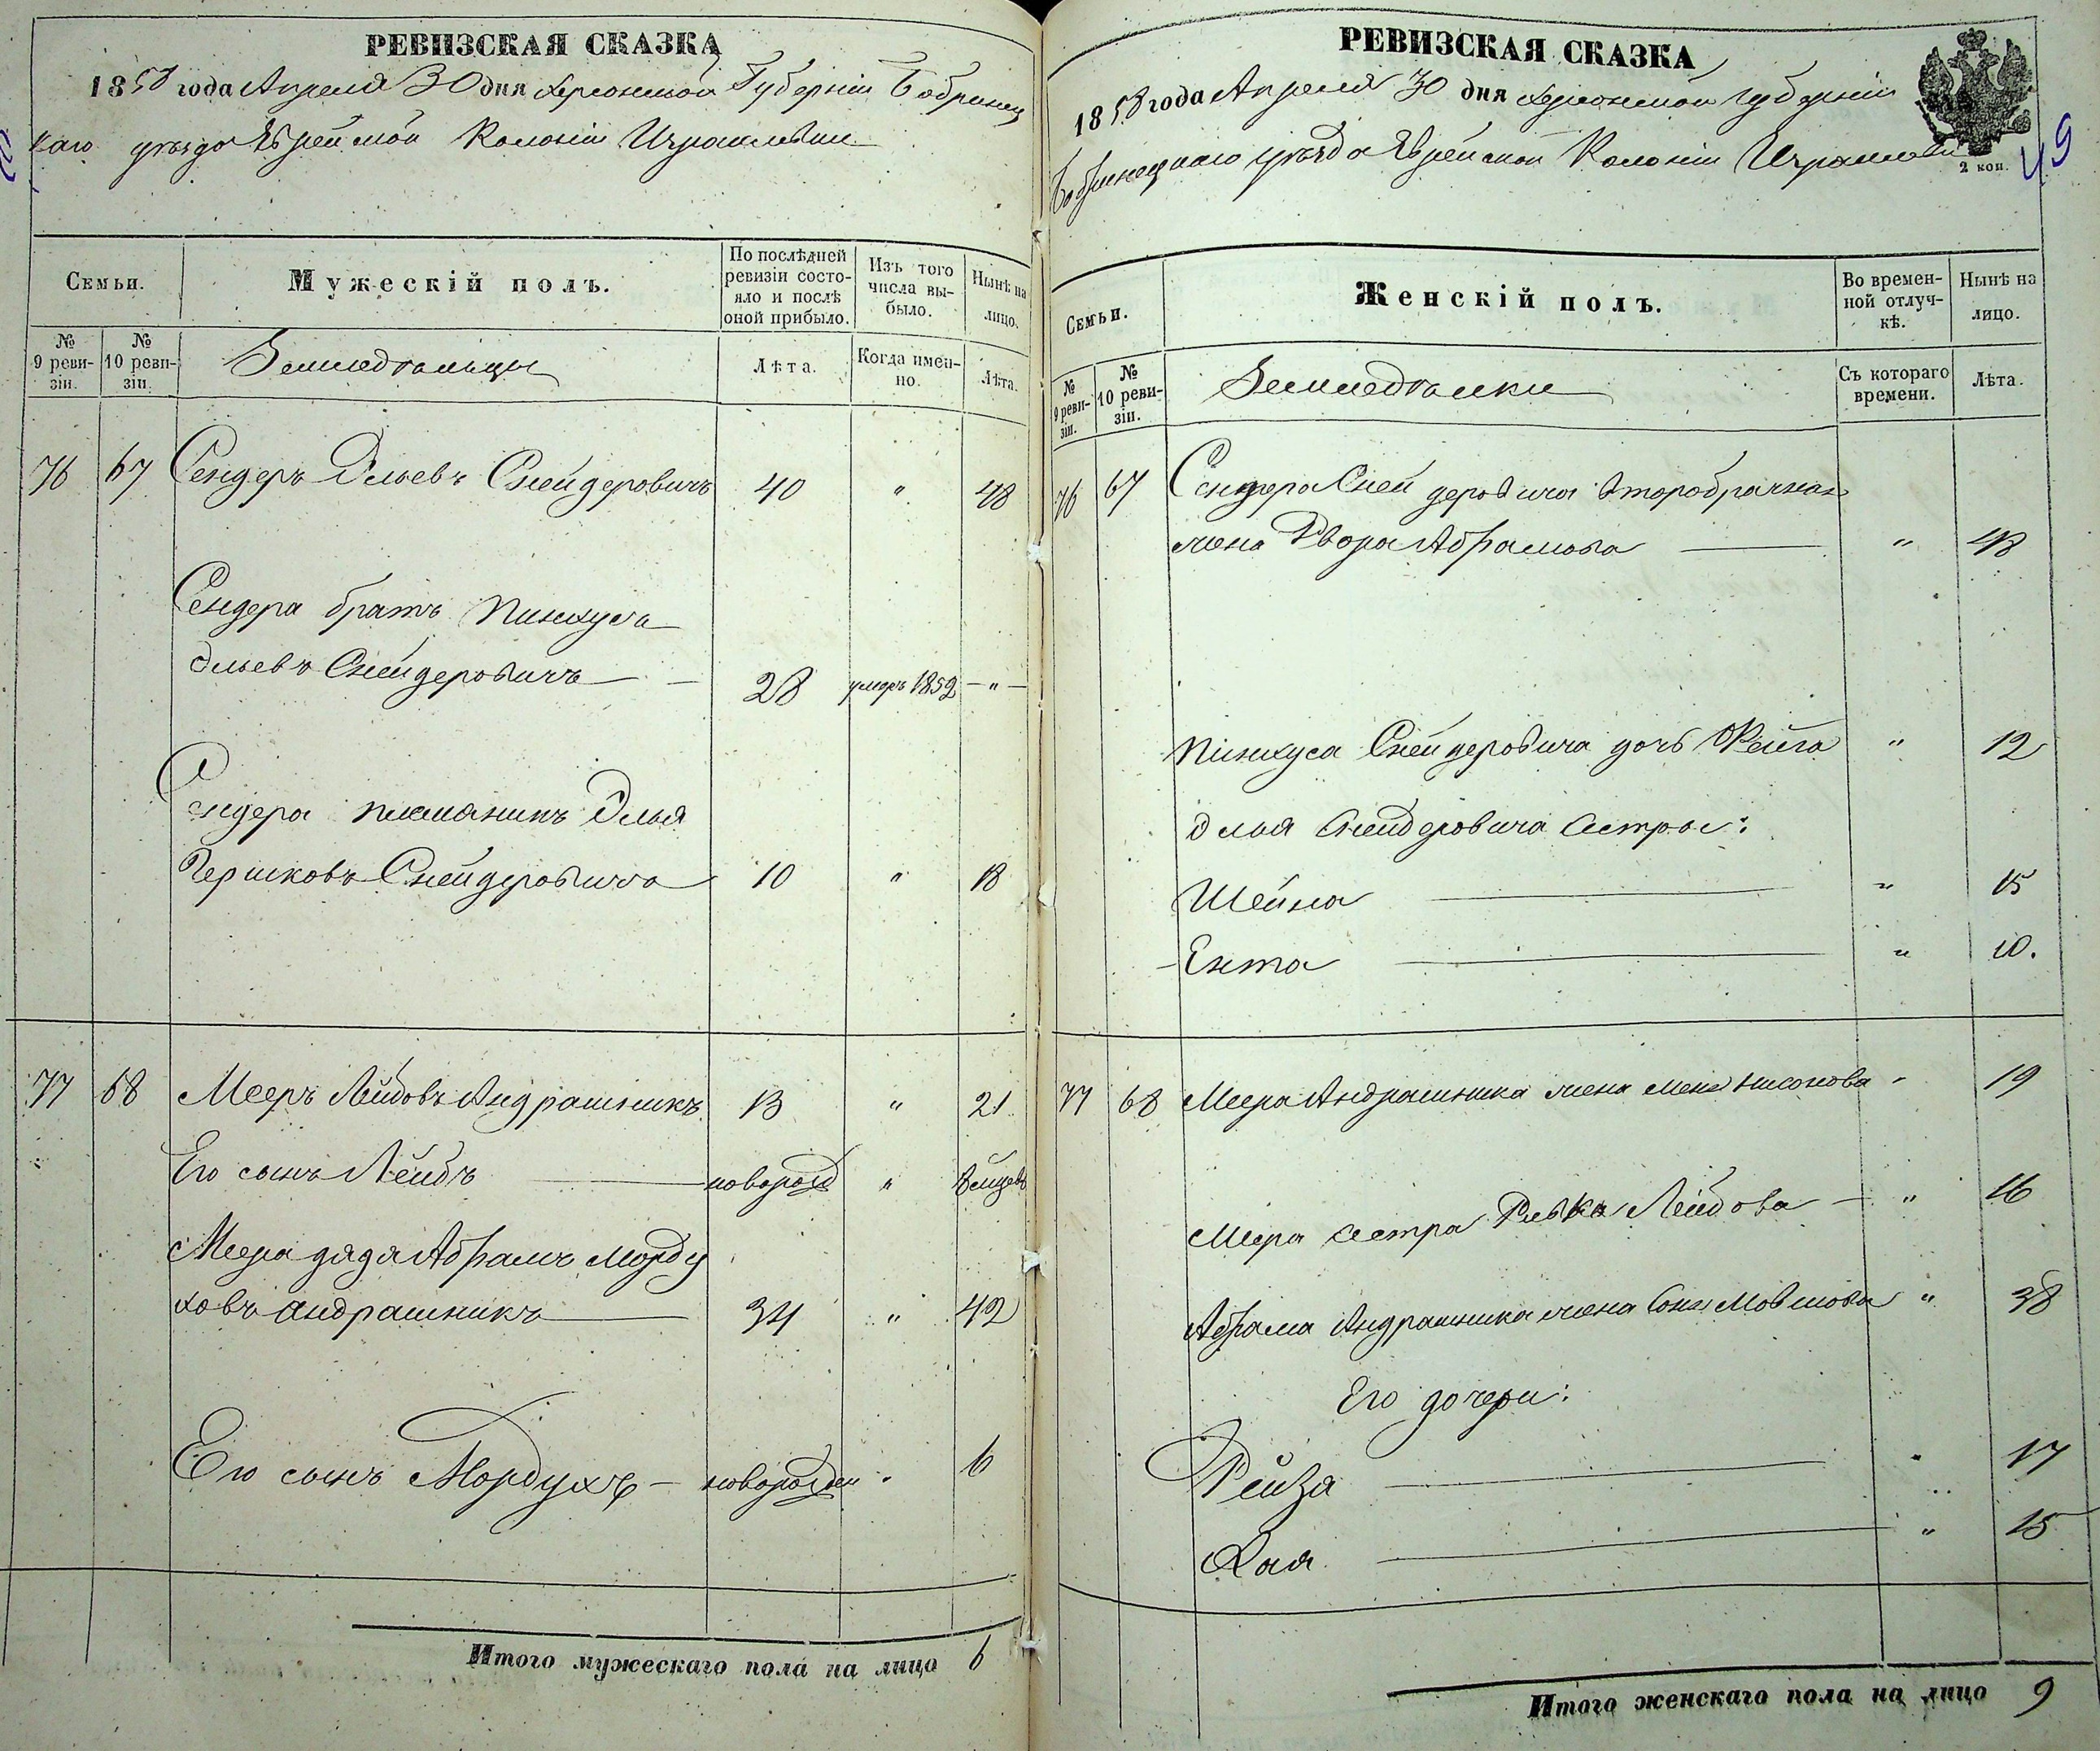 РЕВИЗСКАЯ СКАЗКА
1858 года Апреля 30 дня Херсонской Губерніи Бобринец
каго уѣзда Еврейской Колоніи Израилевки
Семьи.
Мужескій полъ.
По послѣдней
ревизіи состо-
яло и послѣ
оной прибыло.
Изъ того
числа вы-
было.
Нынѣ на
лицо.
№
9 реви-
зіи.
№
10 реви-
зіи.
Земледѣльцы
Лѣта.
Когда имен-
но.
Лѣта.
76 67 Сендеръ Эльевъ Снейдеровичъ 40 " 48
Сендера братъ Пинхусъ
Эльевъ Снейдеровичъ 28 умеръ 1852 — " —
Сендера племяникъ Элья
Гершковъ Снейдеровичъ 10 " 18
77 68 Мееръ Лейбовъ Андрашникъ 13 " 21
Его сынъ Лейбъ новорожд "
Меера дядя Абрамъ Морду
ховъ Андрашникъ 34 " 42
Его сынъ Мордухъ — новорожден " 6
Итого мужескаго пола на лицо 6
РЕВИЗСКАЯ СКАЗКА
1858 года Апреля 30 дня Херсонской Губерніи
Бобринецкаго уѣзда Еврейской Колоніи Израилевки
2 коп.
49
Семьи.
Женскій полъ.
Во времен-
ной отлуч-
кѣ.
Нынѣ на
лицо.
№
9 реви-
зіи.
№
10 реви-
зіи.
Земледѣлки
Съ котораго
времени.
Лѣта.
76 67 Сендера Снейдеровича второбрачная
жена Двора Абрамова " 48
Пинхуса Снейдеровича дочь Фейга " 12
Элья Снейдеровича сестры:
Шейна " 15
Ента " 10.
77 68 Меера Андрашника жена Нисонова " 19
Меера сестра Ривка Лейбова — " 16
Абрама Андрашника жена Сося Мовшова " 38
Его дочери:
Рейза " 17
Хая " 15
Итого женскаго пола на лицо 9